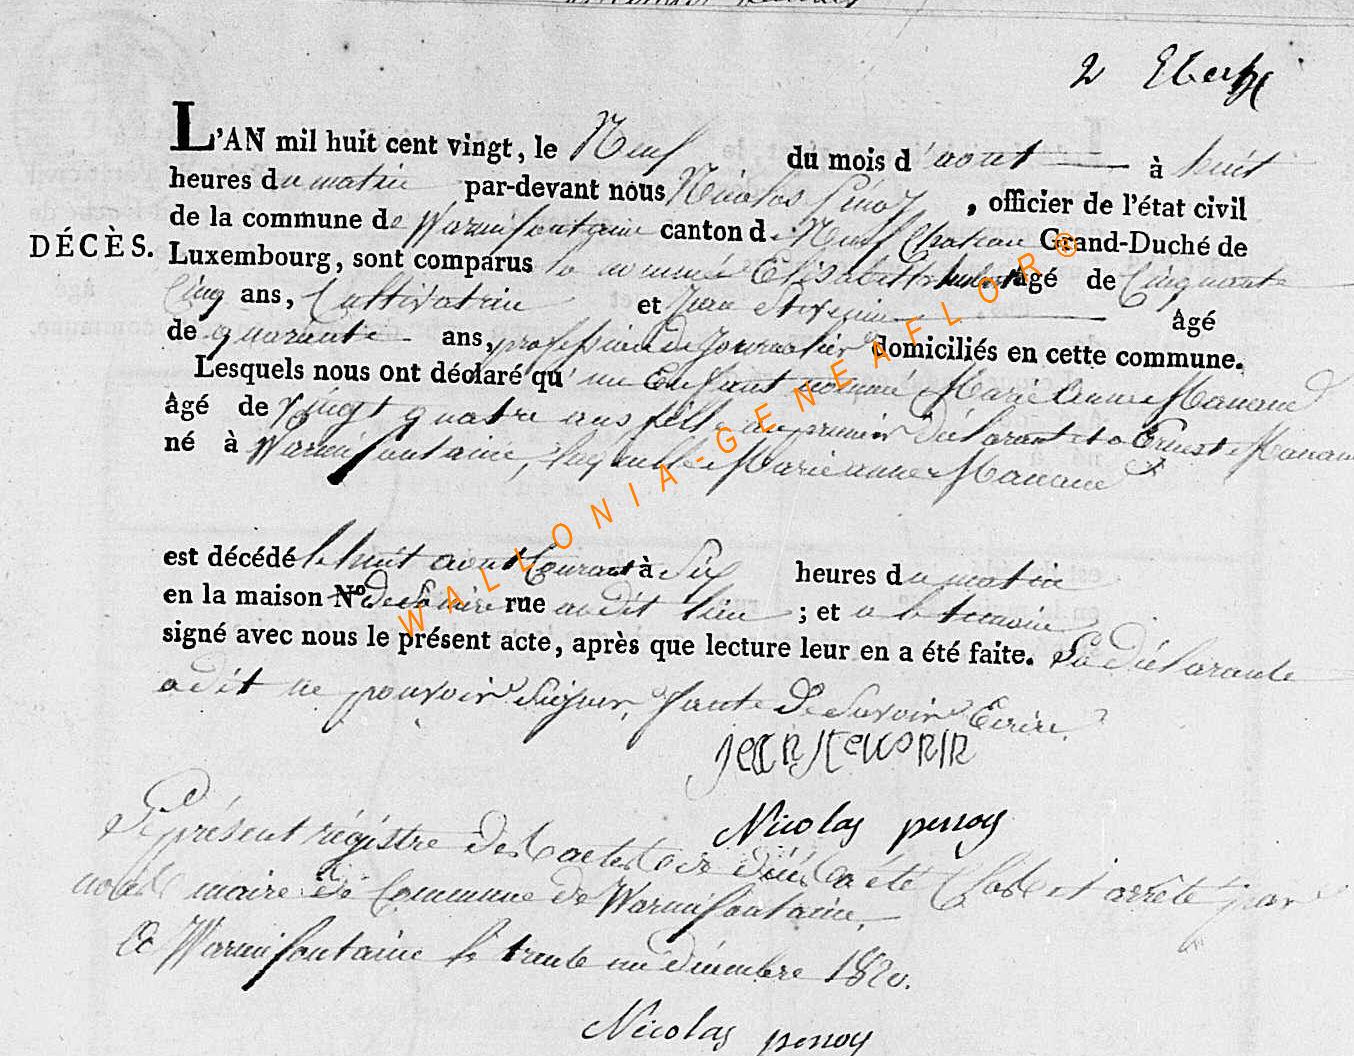 2
L'AN mil huit cent vingt, le Neuf du mois d'aout à huit
heures du matin par-devant nous Nicolas , officier de l'état civil
de la commune de Warmifontaine canton de Neufchateau Grand-Duché de
DÉCÈS.
Luxembourg, sont comparus la nommée Elisabeth âgé de Cinquante
Cinq ans, Cultivatrice et Jean Stevenin âgé
de quarante ans, profession de Journalier domiciliés en cette commune.
Lesquels nous ont déclaré qu'un Enfant nommé Marie Anne
âgé de vingt quatre ans fille du premier déclarant et a Ernest
né à Warmifontaine, laquelle Marie anne
est décédé le huit aout Courant à Six heures du matin
en la maison N° De Sa mère rue au dit lieu ; et a le temoin
signé avec nous le présent acte, après que lecture leur en a été faite. La déclarante
a dit ne pouvoir Signer, faute De Savoir Ecrire.
jean stevenin
Nicolas pinoy
Le présent régistre des actes de décés a été Clos et arrêté par
nous maire de Commune de Warmifontaine,
a Warmifontaine le trente un décembre 1820.
Nicolas pinoy
WALLONIA-GENEAFLOR®